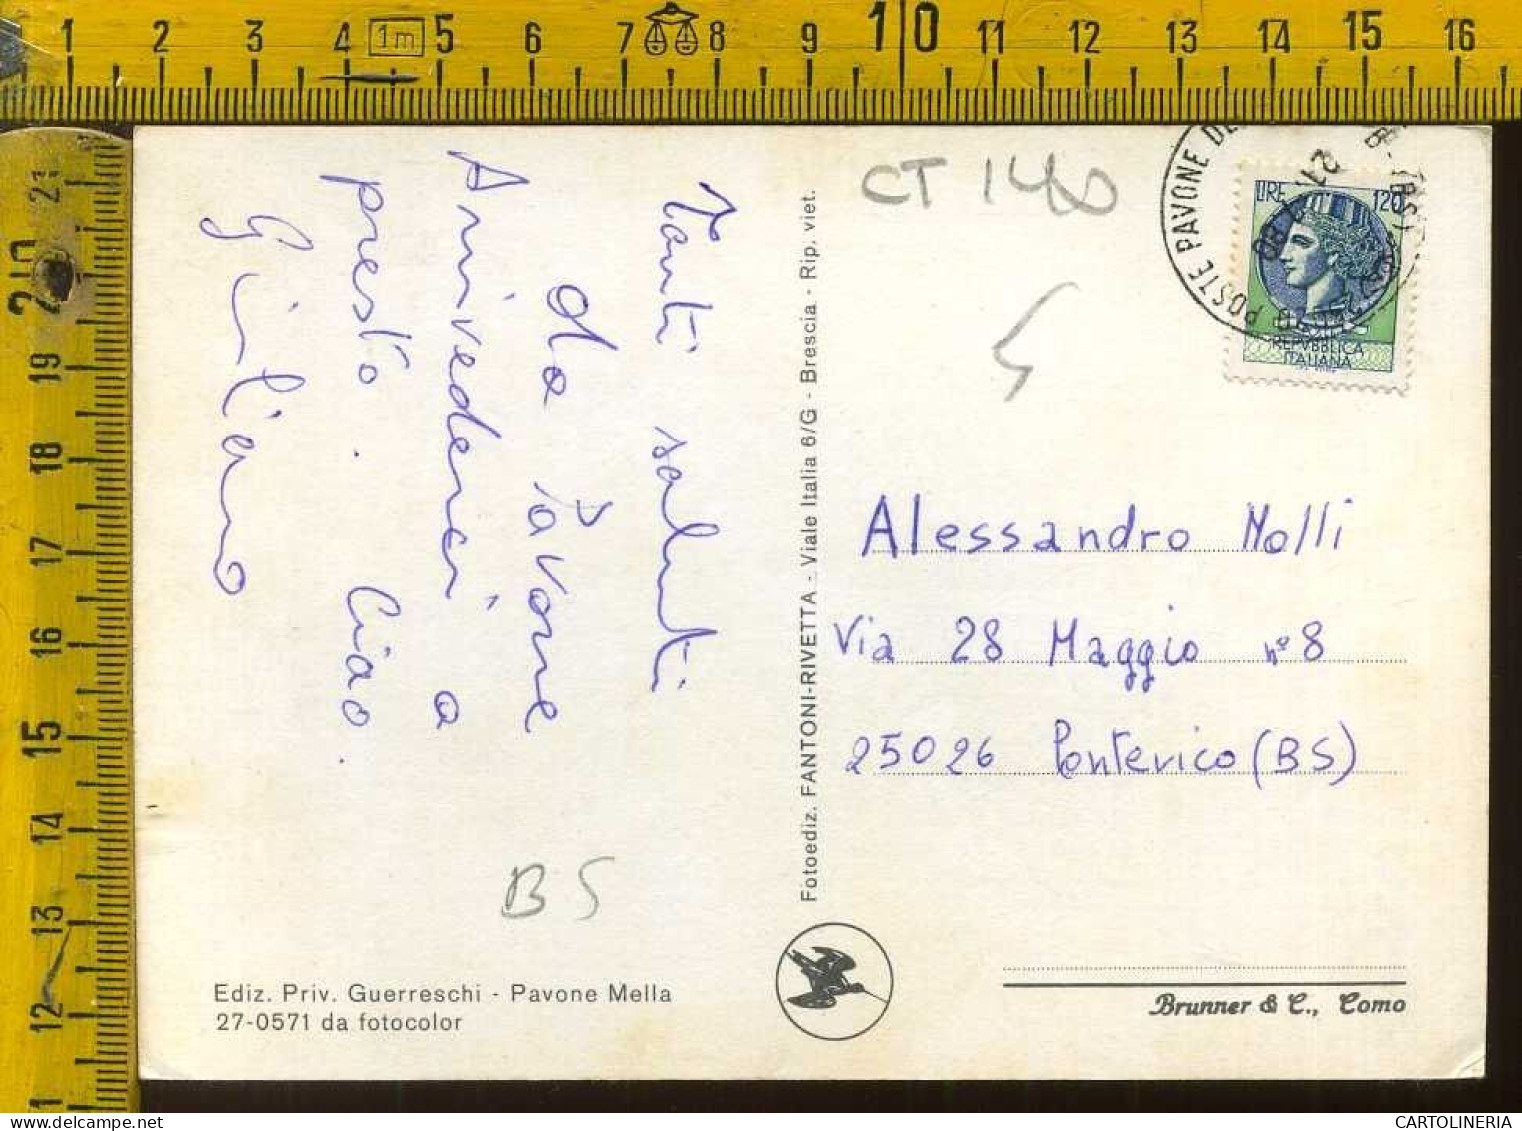 1 2 3 4 1m 5 6 7 8 9 10 11 12 13 14 15 16
21
20
19
18
17
16
15
14
13
12
Tanti saluti
da Pavone
Arrivederci a
presto. Ciao.
Giuliano
BS
Ediz. Priv. Guerreschi - Pavone Mella
27-0571 da fotocolor
Fotoediz. FANTONI-RIVETTA - Viale Italia 6/G - Brescia - Rip. viet.
CT 140
POSTE PAVONE DE
LIRE 120
REPVBBLICA
ITALIANA
Alessandro Molli
Via 28 Maggio n° 8
25026 Pontevico (BS)
Brunner & C., Como
CARTOLINERIA